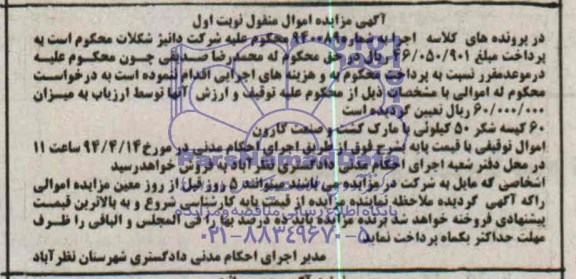 آگهی مزایده اموال منقول نوبت اول
در پرونده های کلاسه اجرا به شماره ۹۴۰۰۸۹ محکوم علیه شرکت دانیژ شکلات محکوم است به
پرداخت مبلغ ۴۶/۰۵۰/۹۰۱ ریال در حق محکوم له محمدرضا صدیقی چون محکوم علیه
در موعدمقرر نسبت به پرداخت محکوم به و هزینه های اجرایی اقدام ننموده است به درخواست
محکوم له اموالی با مشخصات ذیل از محکوم علیه توقیف و ارزش آنها توسط ارزیاب به میزان
۶۰/۰۰۰/۰۰۰ ریال تعیین گردیده است
۶۰ کیسه شکر ۵۰ کیلوئی با مارک کشت و صنعت کارون
اموال توقیفی با قیمت پایه بشرح فوق از طریق اجرای احکام مدنی در مورخ ۹۴/۴/۱۴ ساعت ۱۱
در محل دفتر شعبه اجرای احکام مدنی دادگستری نظرآباد به فروش خواهدرسید
اشخاصی که مایل به شرکت در مزایده می باشند میتوانند ۵ روز قبل از روز معین مزایده اموالی
راکه آگهی گردیده ملاحظه نمایند مزایده از قیمت پایه کارشناسی شروع و به بالاترین قیمت
پیشنهادی فروخته خواهد شد برنده مزایده باید ده درصد بها را فی المجلس و الباقی را ظرف
مهلت حداکثر یکماه پرداخت نماید
مدیر اجرای احکام مدنی دادگستری شهرستان نظرآباد
ParsNamadData
پایگاه اطلاع رسانی مناقصه و مزایده
۰۲۱-۸۸۳۴۹۶۷۰-۵